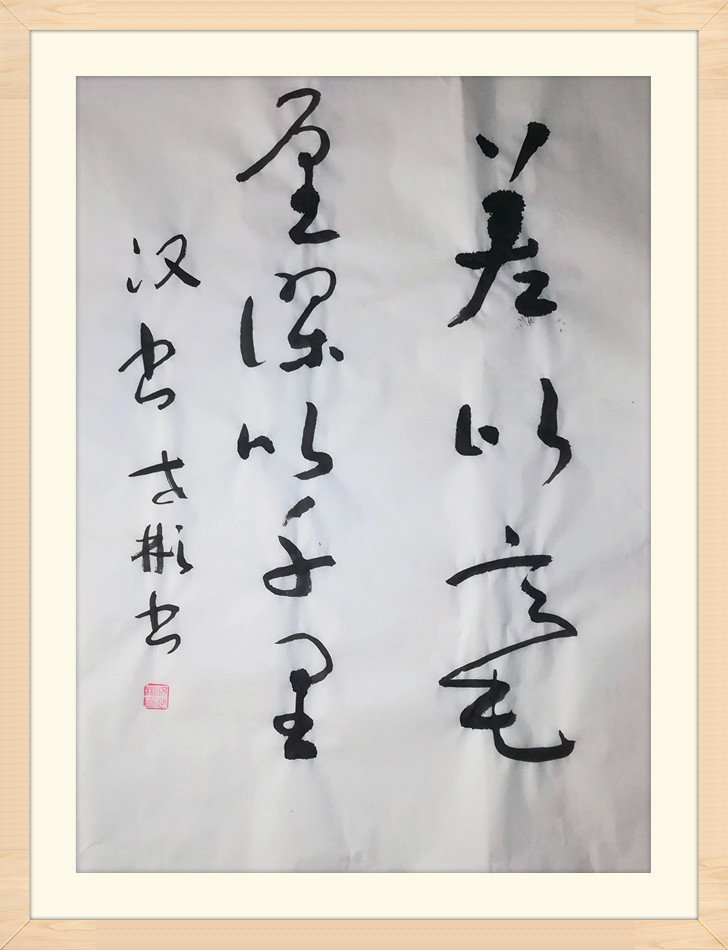 差以毫
厘谬以千里
汉书 世彬书